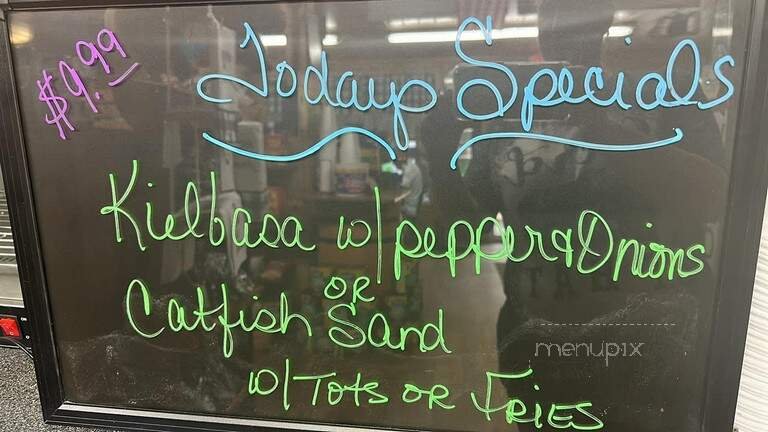 $9.99
Todays Specials
Kielbasa w/ pepper & Onions
OR
Catfish Sand
w/ Tots OR FRIES
menupix